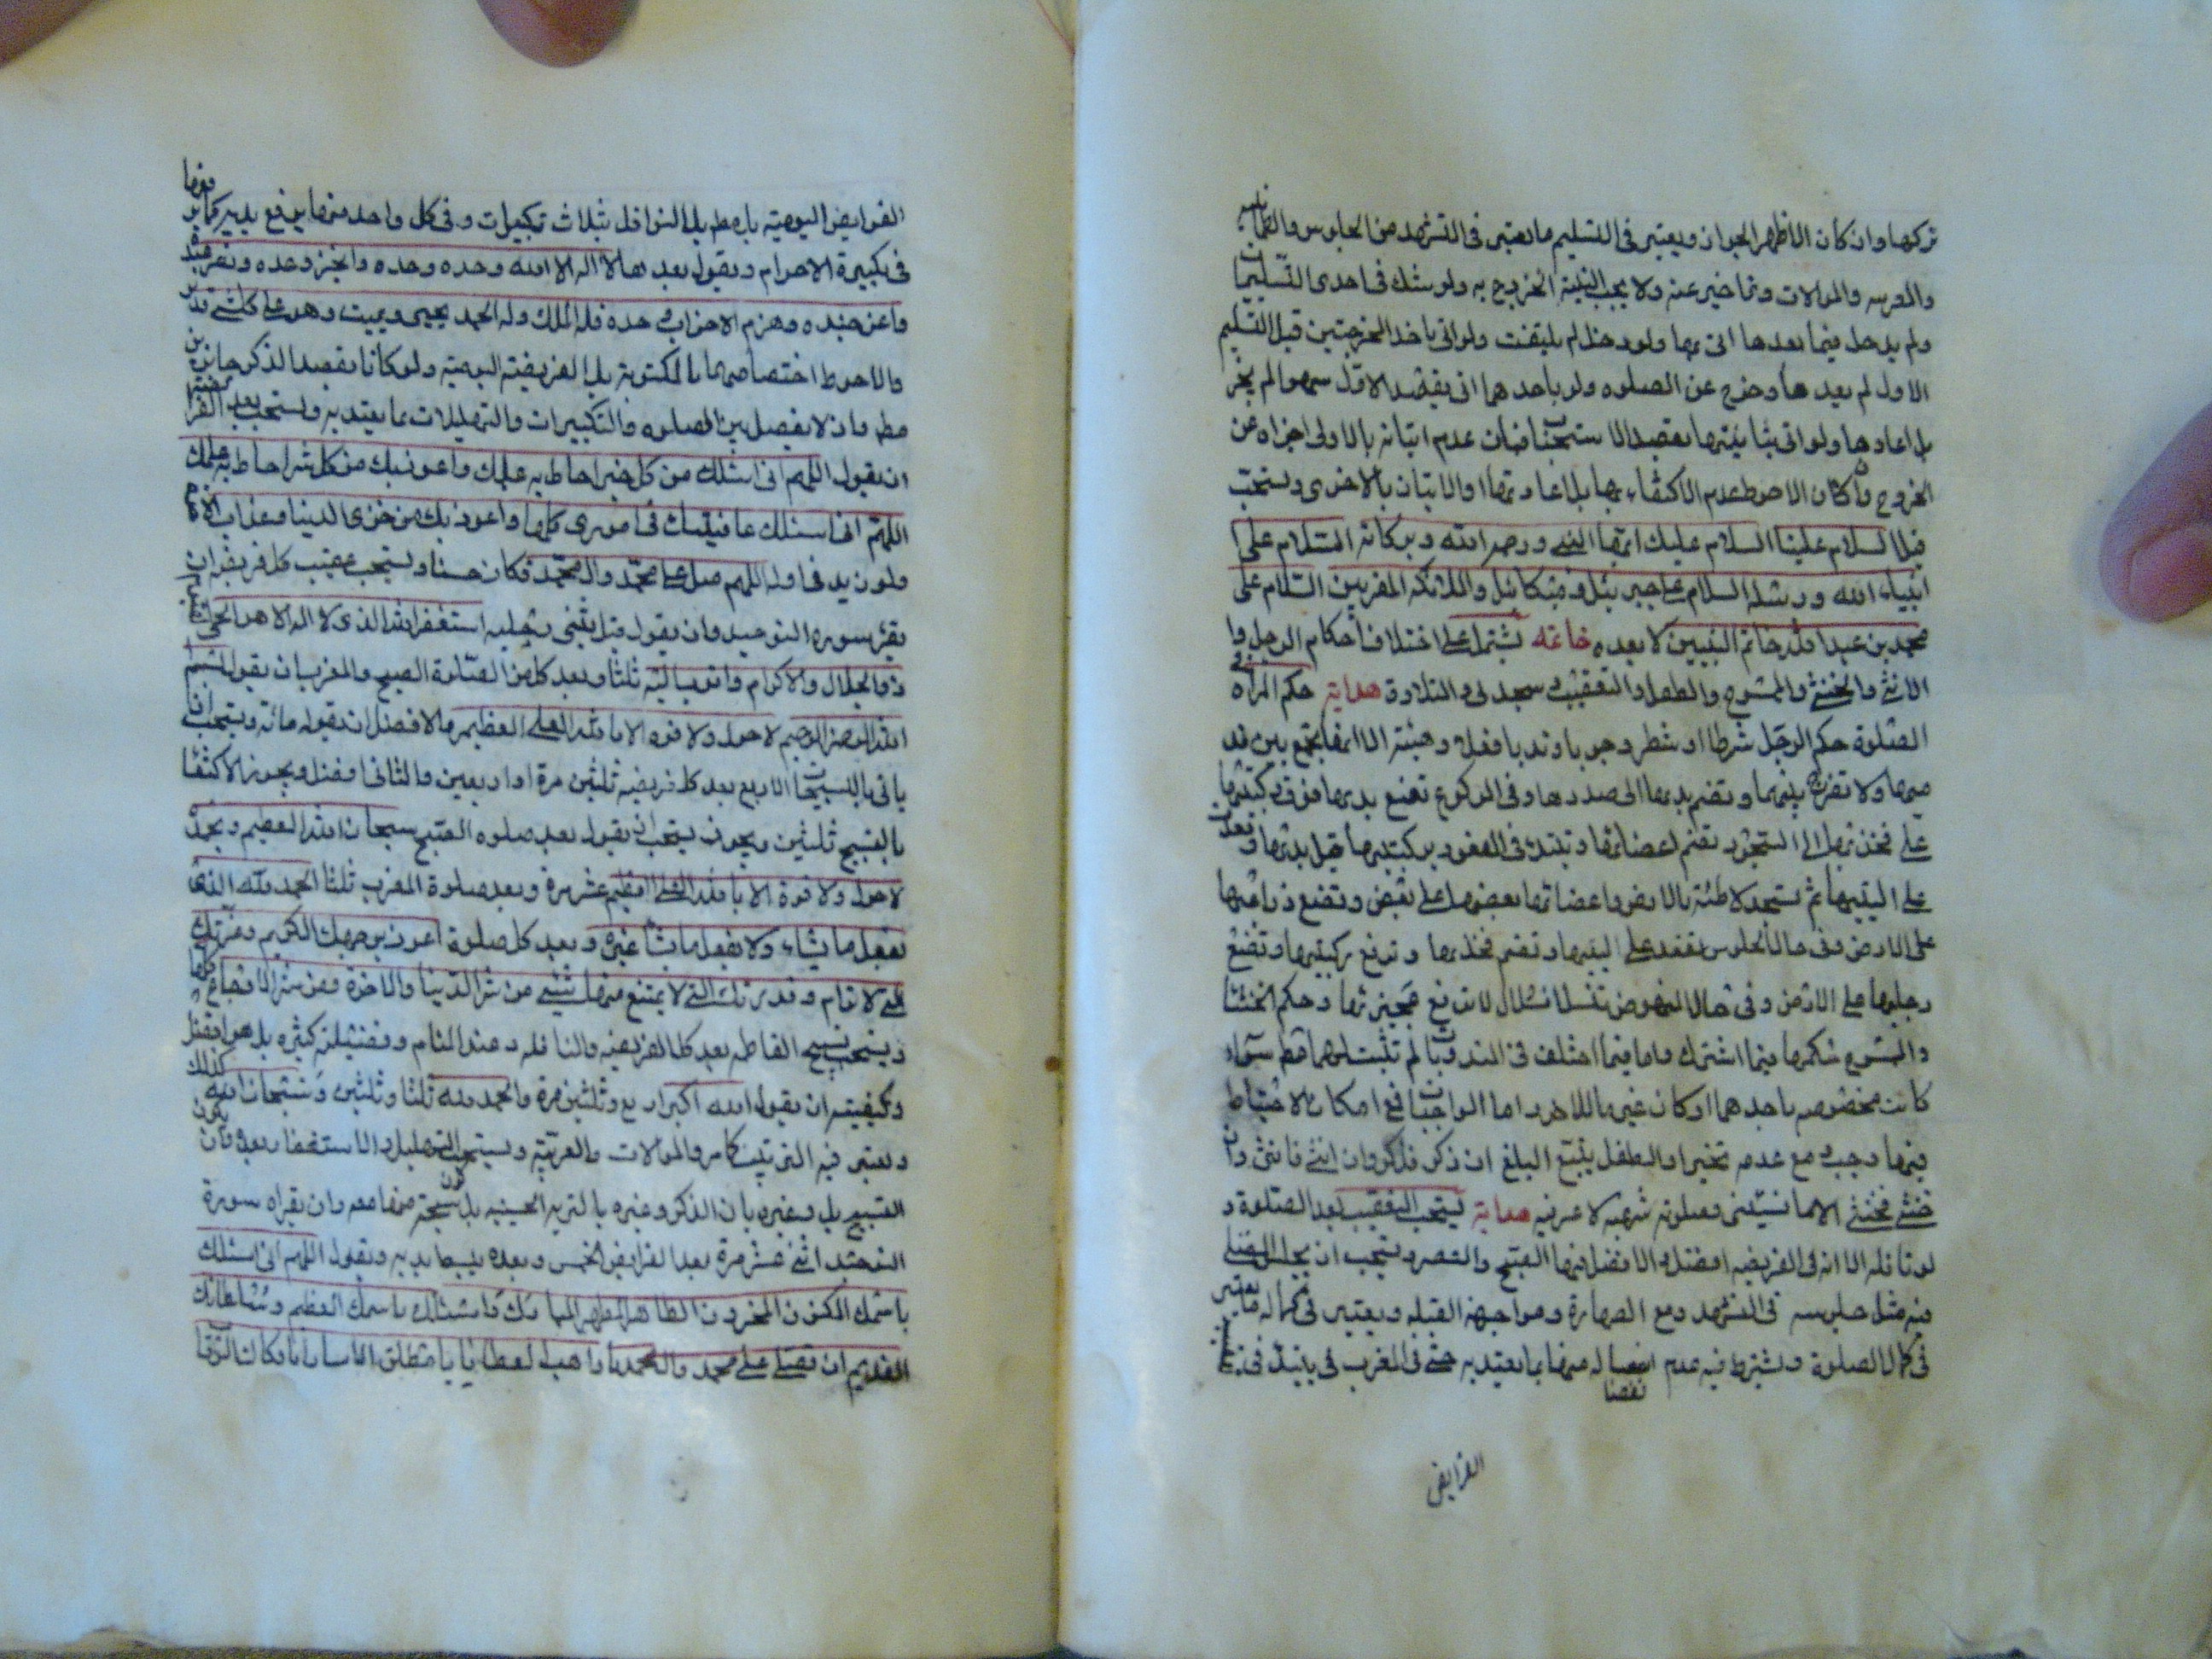 تركها وان كان الاظهر الجواز ويعتبر في التسليم ما يعتبر في التشهد من الجلوس والطمانينه
والعربيه والموالات وتاخيره عنه ولا يجب النية الخروج به ولو شك في احدى التسليمات
ولم يدخل فيما بعدها اتى بها ولو دخل لم يلتفت ولو اتى باحد المخرجتين قبل التسليم
الاول لم يعدها وخرج عن الصلوه ولو باحدهما اتى بقصد الاول سهوا لم يخرج
بل اعادها ولو اتى بثانيتها بقصد الاستحباب فبان عدم اتيانه بالاولى اجزاه عن
الخروج وان كان الاحوط عدم الاكتفاء بها بل اعادتها والاتيان بالاخرى ويستحب
قبل السلام علينا السلام عليك ايها النبي ورحمه الله وبركاته السلام على
انبياء الله ورسله السلام على جبرئيل وميكائيل والملائكه المقربين السلام على
محمد بن عبد الله خاتم النبيين لا نبي بعده خاتمه يشتمل على اختلاف احكام الرجل و
الانثى والخنثى والممسوح والطفل والتعقيب وسجدتي التلاوة هدايه حكم المراه في
الصلوة حكم الرجل شرطا وشطرا وجوبا وندبا فعلا وهيئة الا انها تجمع بين قد
ميها ولا تفرج بينهما وتضم يديها الى صدرها وفي الركوع تضع يديها فوق ركبتيها
على فخذيها والى السجود تضم اعضائها وتبتدء في القعود بركبتيها قبل يديها وتقعد
على اليتيها ثم تسجد لاطئة بالارض واعضائها بعضها على بعض وتضع ذراعيها
على الارض وفي حال الجلوس تقعد على اليتيها وتضم فخذيها وترفع ركبتيها وتضع
رجليها على الارض وفي حال النهوض تنسل انسلالا لا ترفع عجيزتها وحكم الخنثى
والممسوح حكمها فيما اشترك واما فيما اختلف في المندوبات لم تثبت لهما قط سواء
كانت مخصوصه باحدهما او كان غيره للاخر واما الواجبات فمع امكان الاحتياط
فيها وجب ومع عدمه تخيرا والطفل يتبع البالغ ان ذكر فذكر وان انثى فانثى وان
خنثى فخنثى الا ما استثنى وصلوته شرعيه لا تمرينيه هدايه يستحب التعقيب بعد الصلوة و
لو نافله الا انه في الفريضه افضل والافضل فيها الصبح والعصر ويستحب ان يجلس المصلي
فيه مثل جلوسه في التشهد ومع الطهارة ومواجهة القبله ويعتبر في كماله ما يعتبر
في كمال الصلوة ويشترط فيه عدم انفصاله عنها بما يعتد به حتى في المغرب في
الفرايض
الفرايض اليوميه بل مطـ بل النوافل بثلاث تكبيرات وفي كل واحد منها يرفع يديه كما يرفعها
في تكبيرة الاحرام ويقول بعدها لا اله الا الله وحده وحده وحده وانجز وعده ونصر عبده
واعز جنده وهزم الاحزاب وحده فله الملك وله الحمد يحيى ويميت وهو على كلشيء قدير
والاحوط اختصاصهما بالمكتوبه بل الفريضه اليوميه ولو كانا بقصد الذكر جائزين
مطـ وان لا يفصل بين الصلوه والتكبيرات والتهليلات بما يعتد به ويستحب بعد الفريضه
ان يقول اللهم اني اسئلك من كل خير احاط به علمك واعوذ بك من كل شر احاط به علمك
اللهم اني اسئلك عافيتك في اموري كلها واعوذ بك من خزى الدنيا وعذاب الاخره
ولو زيد في اوله اللهم صل على محمد وال محمد فكان حسنا ويستحب عقيب كل فريضه ان
يقرء سوره التوحيد وان يقول قبل يثني رجليه استغفر الله الذي لا اله الا هو الحي القيوم
ذو الجلال والاكرام واتوب اليه ثلثا وبعد كل من الصلوة الصبح والمغرب ان يقول بسم
الله الرحمن الرحيم لا حول ولا قوه الا بالله العلي العظيم والافضل ان يقوله مائه ويستحب ان
ياتي بالتسبيحات الاربع بعد كل فريضه ثلثين مرة او اربعين والثاني افضل ويجوز الاكتفا
بالتسبيح ثلثين ويستحب ان يقول بعد صلوه الصبح سبحان الله العظيم وبحمده
لا حول ولا قوة الا بالله العلي العظيم عشر مرة وبعد صلوة المغرب ثلثا الحمد لله الذي
يفعل ما يشاء ولا يفعل ما يشاء غيره وبعد كل صلوة اعوذ بوجهك الكريم وعزتك
التي لا ترام وقدرتك التي لا يمتنع منها شيء من شر الدنيا والاخرة ومن شر الاوجاع كلها
ويستحب تسبيح الفاطمه بعد كل الفريضه والنافله وعند المنام وفضيلته كثيره بل هو افضل
وكيفيته ان يقول الله اكبر اربع وثلثين مرة والحمد لله ثلثا وثلثين وسبحان الله كذلك
ويعتبر فيه الترتيب كما مر والموالات والعربيه ويستحب التهليل والاستغفار بعده وان يكون
التسبيح بل وغيره بان الذكر وغيره بالتربه الحسينيه بل سبحته منها معه وان يقراه سورة
التوحيد اثنى عشر مرة بعد الفرايض الخمس وبعده يبسط يديه ويقول اللهم اني اسئلك
باسمك المكنون المخزون الطاهر المطهر المبارك واسئلك باسمك العظيم وسلطانك
القديم ان تصلي على محمد وال محمد يا واهب العطايا يا مطلق الاسارا يا فكاك الرقا